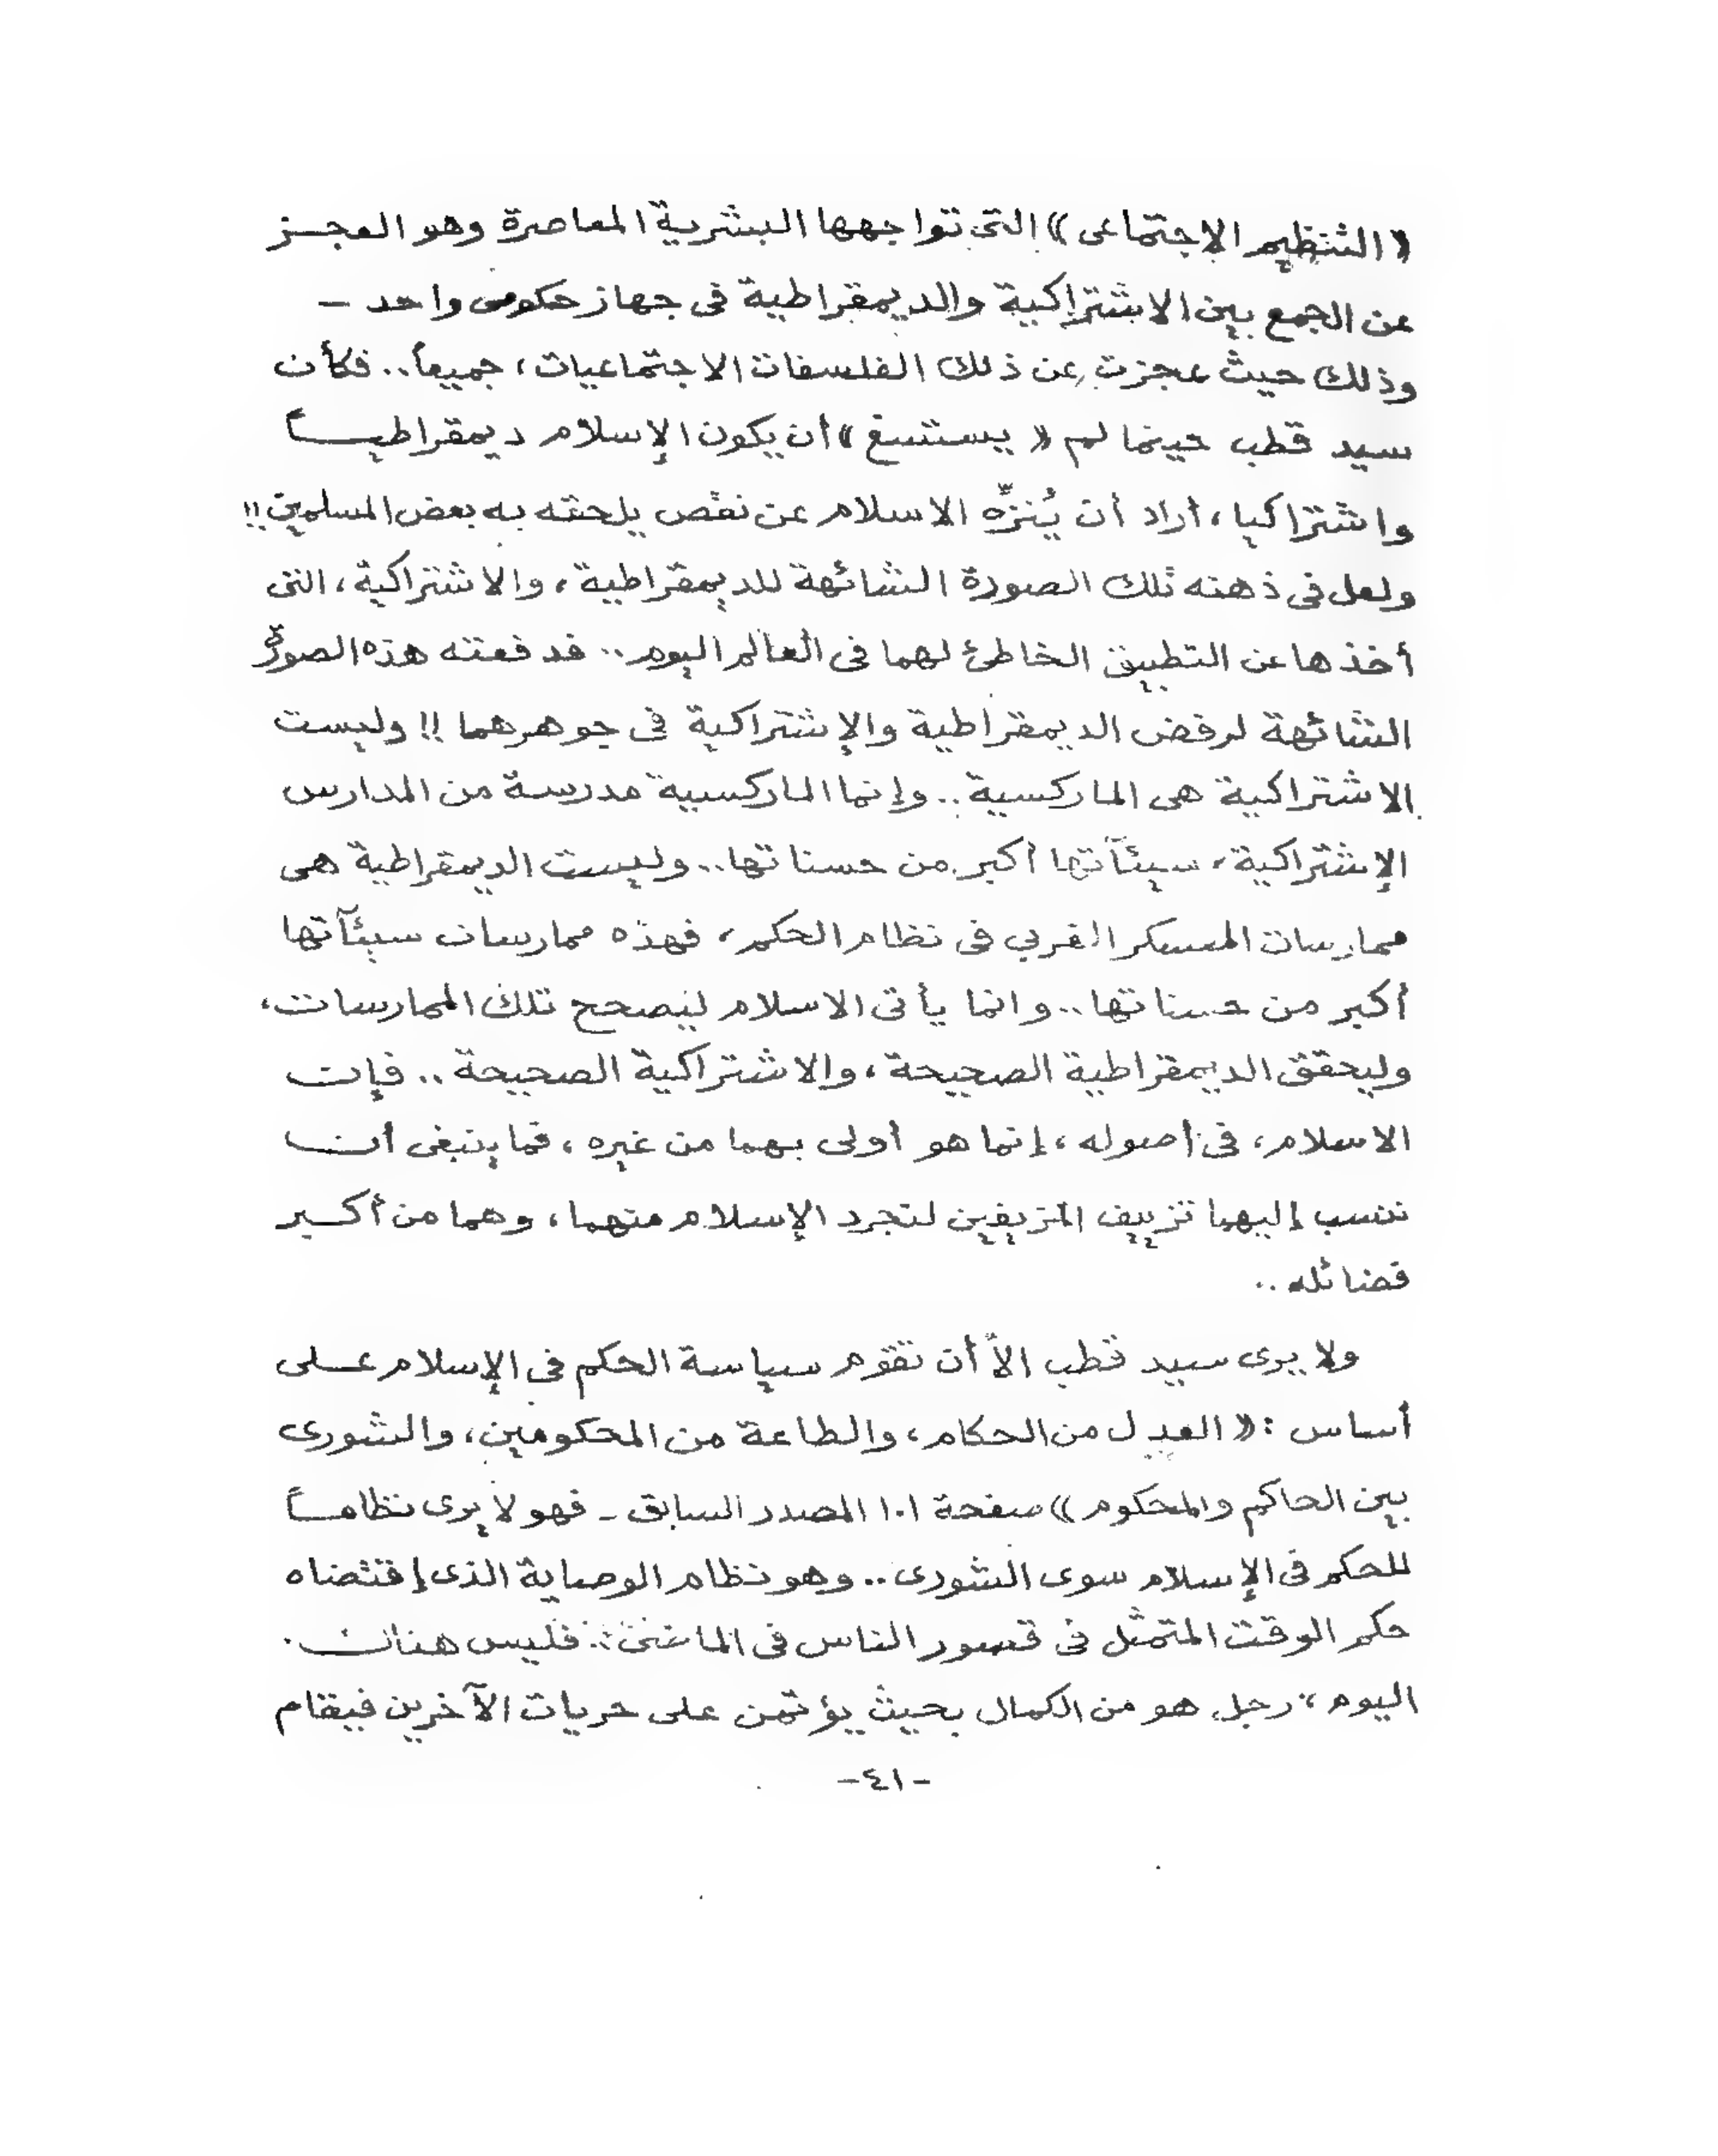 «التنظيم الاجتماعى» التى تواجهها البشرية المعاصرة وهو العجـز
عن الجمع بين الاشتراكية والديمقراطية فى جهاز حكومى واحد –
وذلك حيث عجزت عن ذلك الفلسفات الاجتماعيات، جميعاً.. فكأن
سيد قطب حينما لم «يستسغ» أن يكون الإسلام ديمقراطيـاً
واشتراكيا، أراد أن يُنزِّه الاسلام عن نقص يلحقه به بعض المسلمين!!
ولعل فى ذهنه تلك الصورة الشائهة للديمقراطية، والاشتراكية، التى
أخذها عن التطبيق الخاطئ لهما فى العالم اليوم.. فدفعته هذه الصورة
الشائهة لرفض الديمقراطية والإشتراكية فى جوهرهما!! وليست
الاشتراكية هى الماركسية.. وإنما الماركسية مدرسة من المدارس
الإشتراكية، سيئآتها أكبر من حسناتها.. وليست الديمقراطية هى
ممارسات المعسكر الغربي فى نظام الحكم، فهذه ممارسات سيئآتها
أكبر من حسناتها.. وانما يأتى الاسلام ليصحح تلك الممارسات،
وليحقق الديمقراطية الصحيحة، والاشتراكية الصحيحة.. فإن
الاسلام، فى أصوله، إنما هو أولى بهما من غيره، فما ينبغى أن
ننسب إليهما تزييف المزيفين لنجرد الإسلام منهما، وهما من أكـبر
فضائله..
ولا يرى سيد قطب الاّ أن تقوم سياسة الحكم فى الإسلام عـلى
أساس : «العدل من الحكام، والطاعة من المحكومين، والشورى
بين الحاكم والمحكوم» صفحة ١٠١ المصدر السابق - فهو لا يرى نظامـاً
للحكم فى الإسلام سوى الشورى.. وهو نظام الوصاية الذى إقتضاه
حكم الوقت المتمثل فى قصور الناس فى الماضى.. فليس هناك
اليوم، رجل هو من الكمال بحيث يؤتمن على حريات الآخرين فيقام
-٤١-